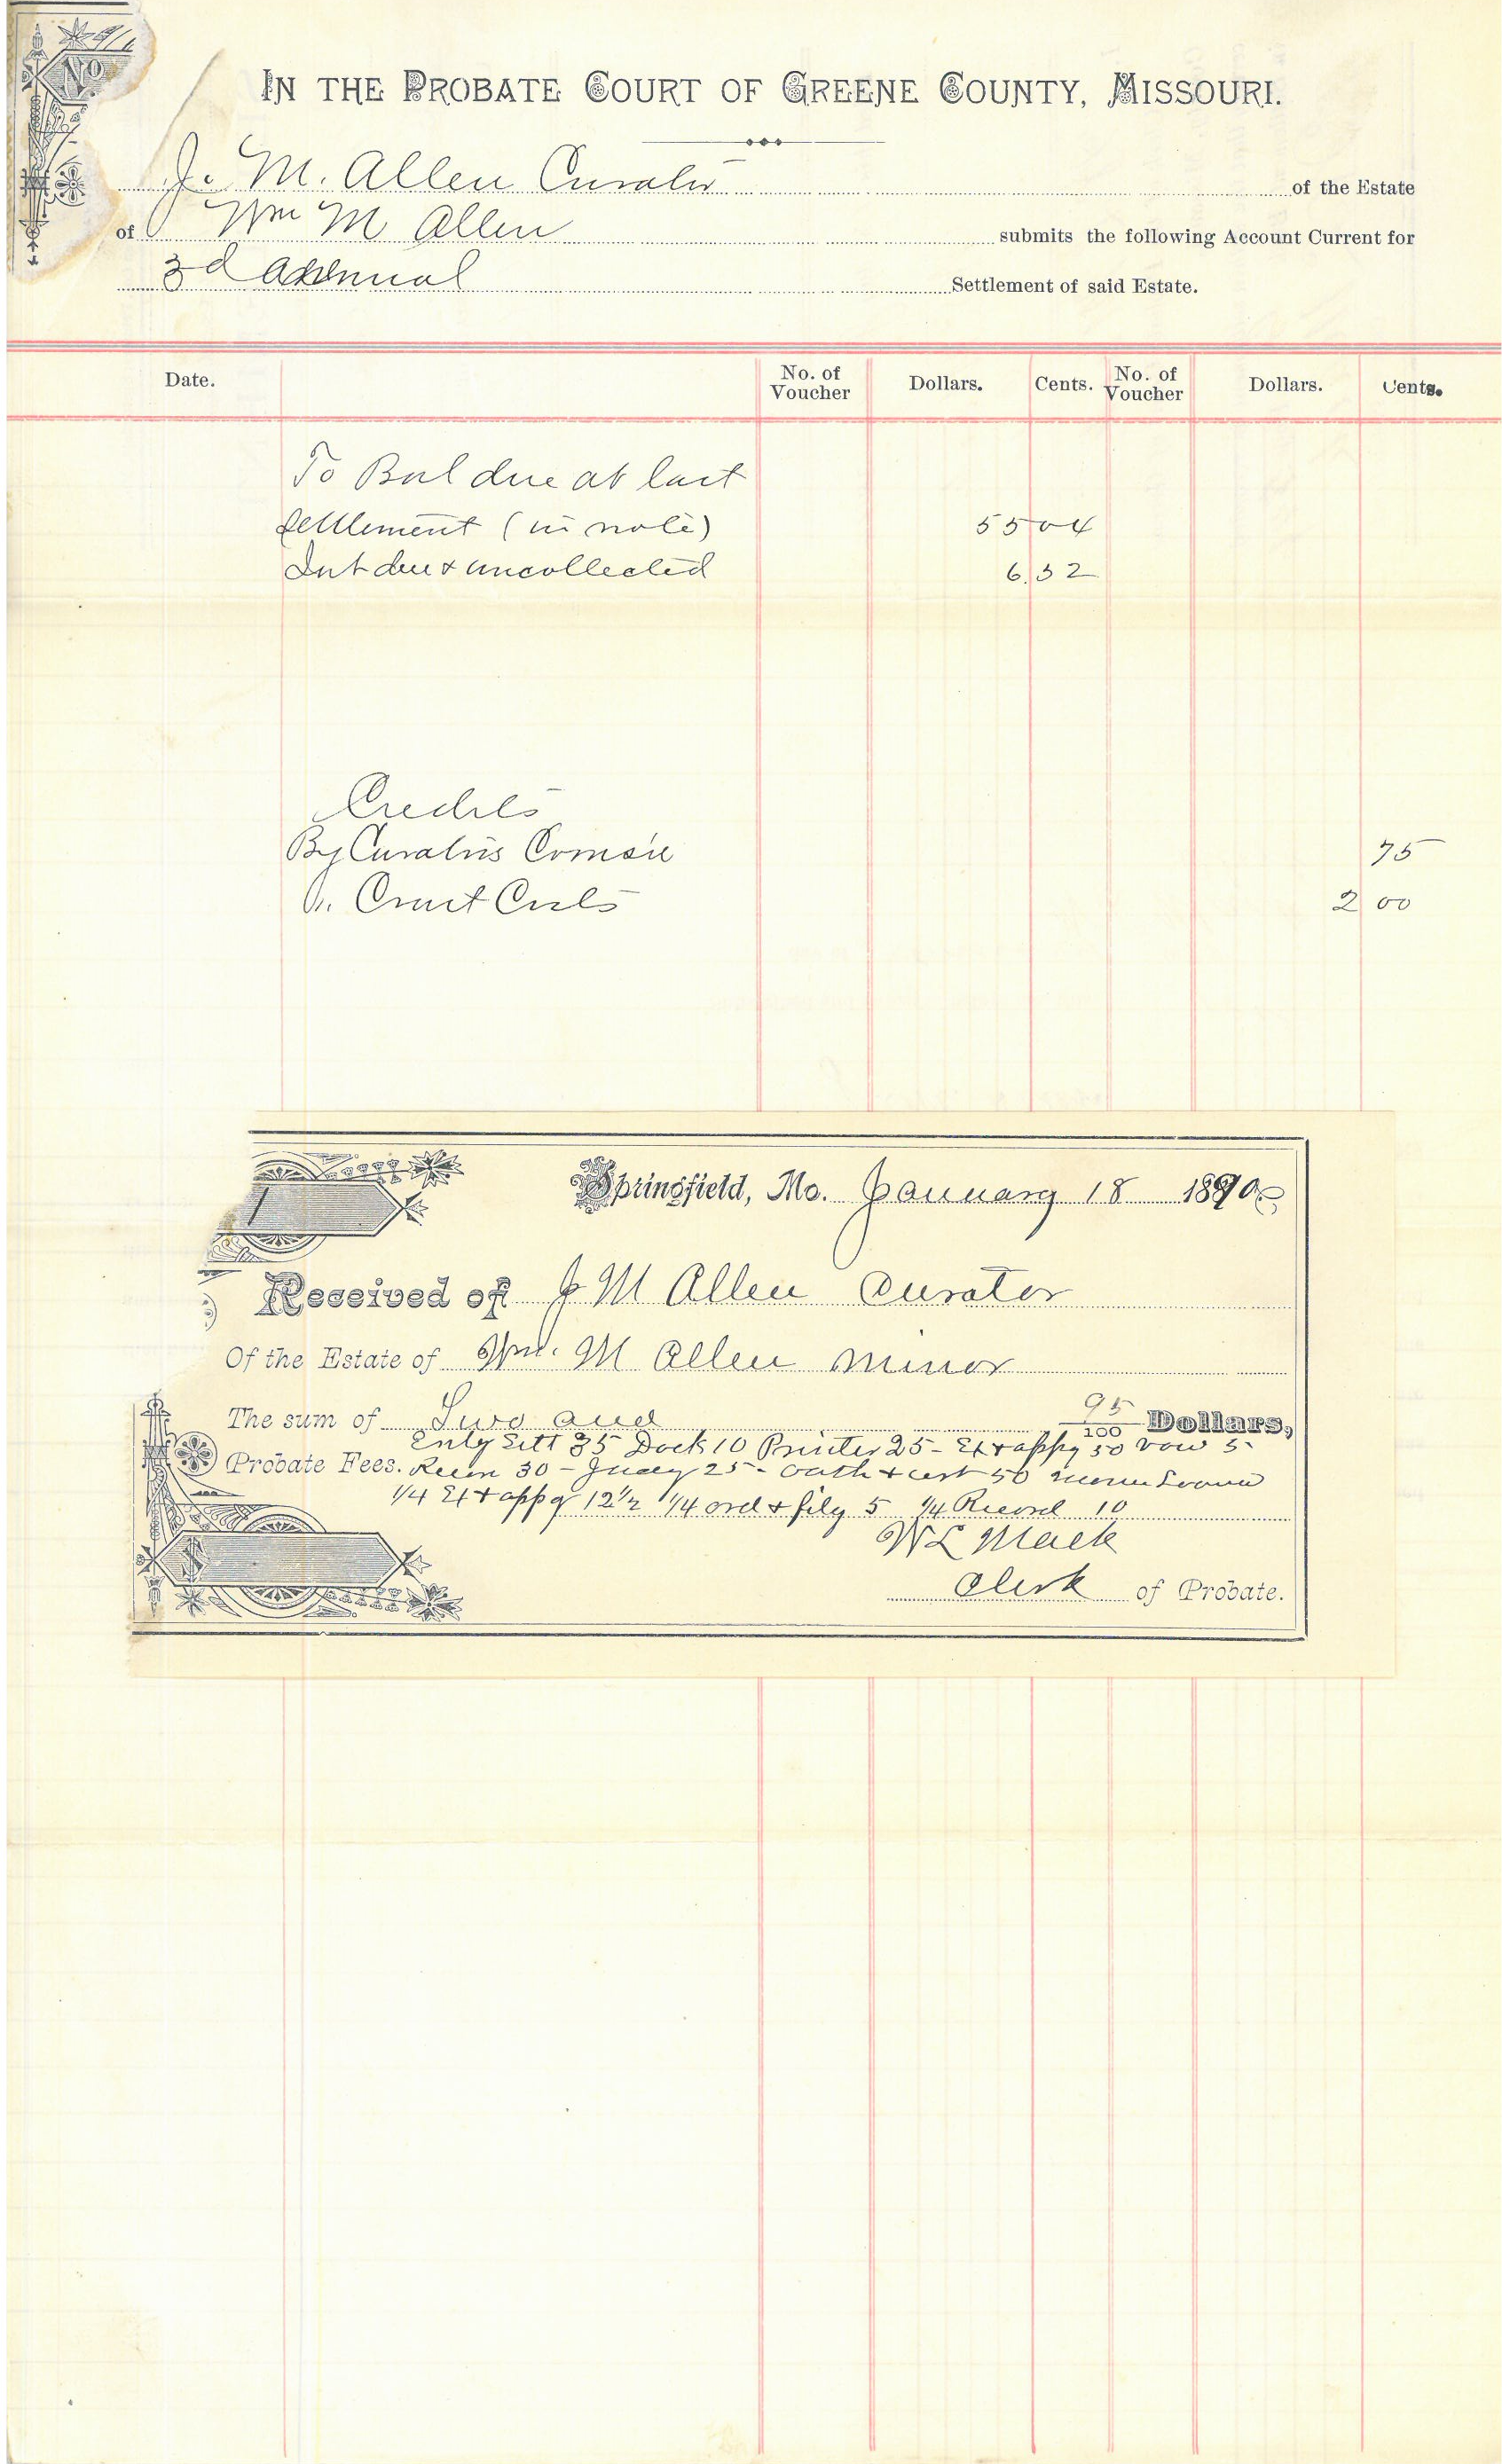 No
IN THE PROBATE COURT OF GREENE COUNTY, MISSOURI.
J. M. Allen Curator of the Estate
of Wm M Allen submits the following Account Current for
3d Annual Settlement of said Estate.
Date. No. of Voucher Dollars. Cents. No. of Voucher Dollars. Cents.
To Bal due at last
settlement (in note) 55 04
Int due & uncollected 6 32
Credits
By Curators Comsn 75
" Court Costs 2 00
1
Springfield, Mo. January 18 1890
Received of J M Allen Curator
Of the Estate of Wm. M Allen minor
The sum of Two and 95/100 Dollars,
Entg Sett 35 Dock 10 Printer 25 - Ex & appg 50 vou 5
Probate Fees. 30 - 25 - oath & cert 50
1/4 Ex & appg 12 1/2 1/4 ord & filg 5 1/4 Record 10
W L Mack
Clerk of Probate.